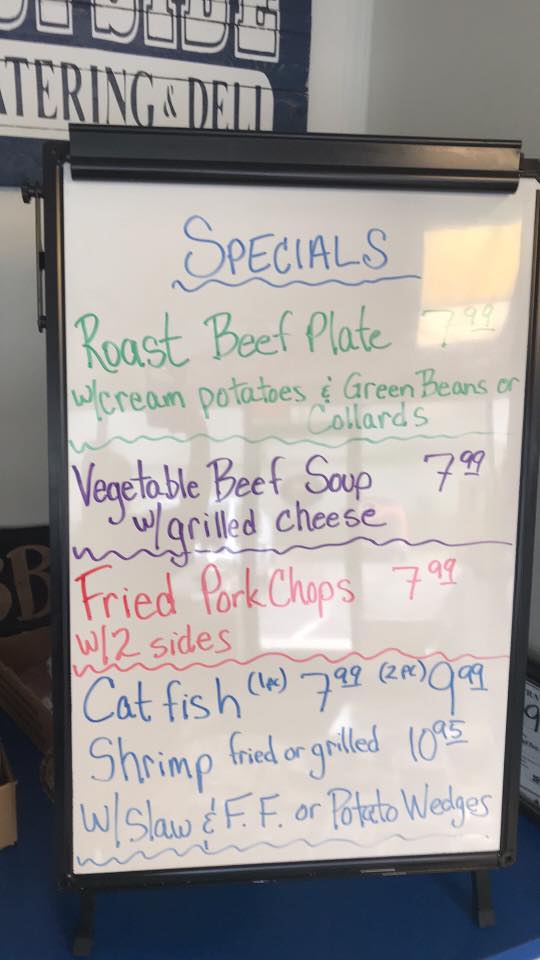 CATERING & DELI
SPECIALS
Roast Beef Plate 7.99
w/cream potatoes & Green Beans or
Collards
Vegetable Beef Soup 7.99
w/grilled cheese
Fried Pork Chops 7.99
w/2 sides
Catfish (1pc) 7.99 (2pc) 9.99
Shrimp fried or grilled 10.95
w/Slaw & F.F. or Potato Wedges